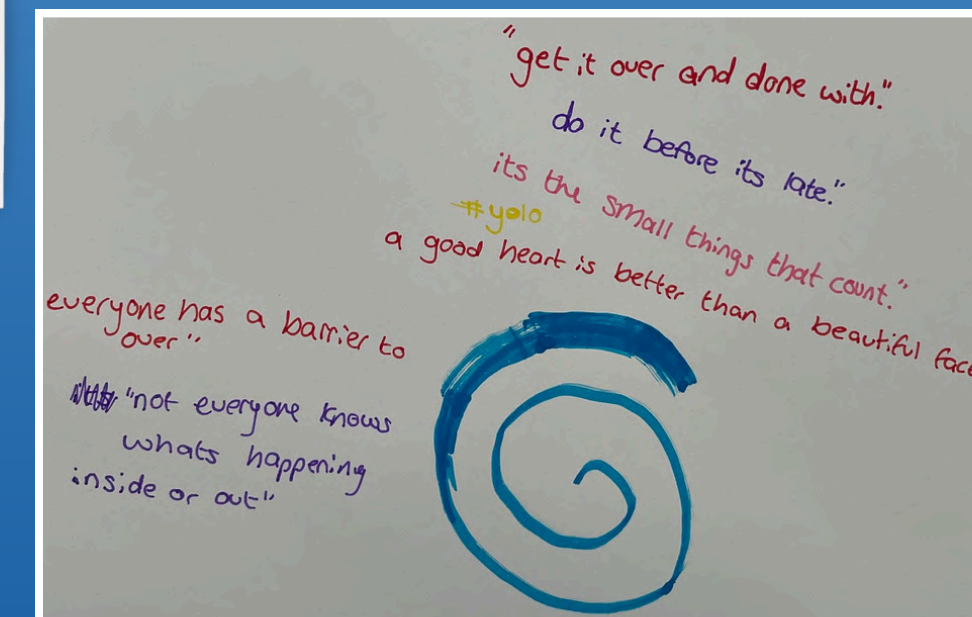 "get it over and done with."
do it before its late."
its the small things that count."
#yolo
a good heart is better than a beautiful face
everyone has a barrier to
over"
"not everyone knows
whats happening
inside or out"